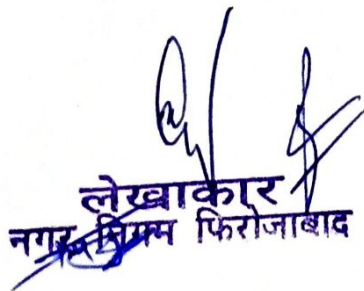 लेखाकार
नगर निगम फिरोजाबाद